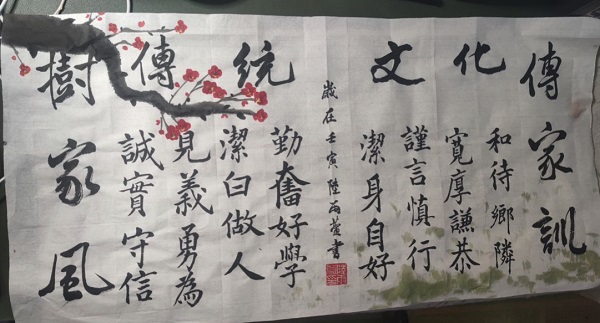 傳統文化
傳家訓
和待鄉隣
寬厚謙恭
謹言慎行
潔身自好
歲在壬寅陸雨萱書
勤奮好學
潔白做人
見義勇為
誠實守信
樹家風